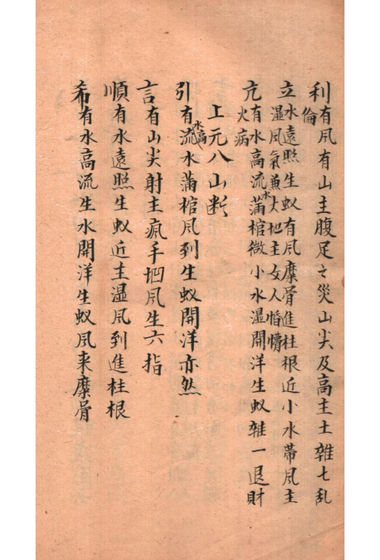 利有風有山主腹足之災山尖及高主土雜七乱
倫
立水遠照生蚁有風糜骨進柱根近小水帶風主
湿風氣
女人
亢有水高流蒲棺微小水湿開洋生蚁雜一退財
火病
上元八山断
引有流水蒲棺風到生蚁開洋亦然
言有山尖射主瘋手把風生六指
順有水遠照生蚁近主湿風到進柱根
希有水高流生水開洋生蚁風来糜骨